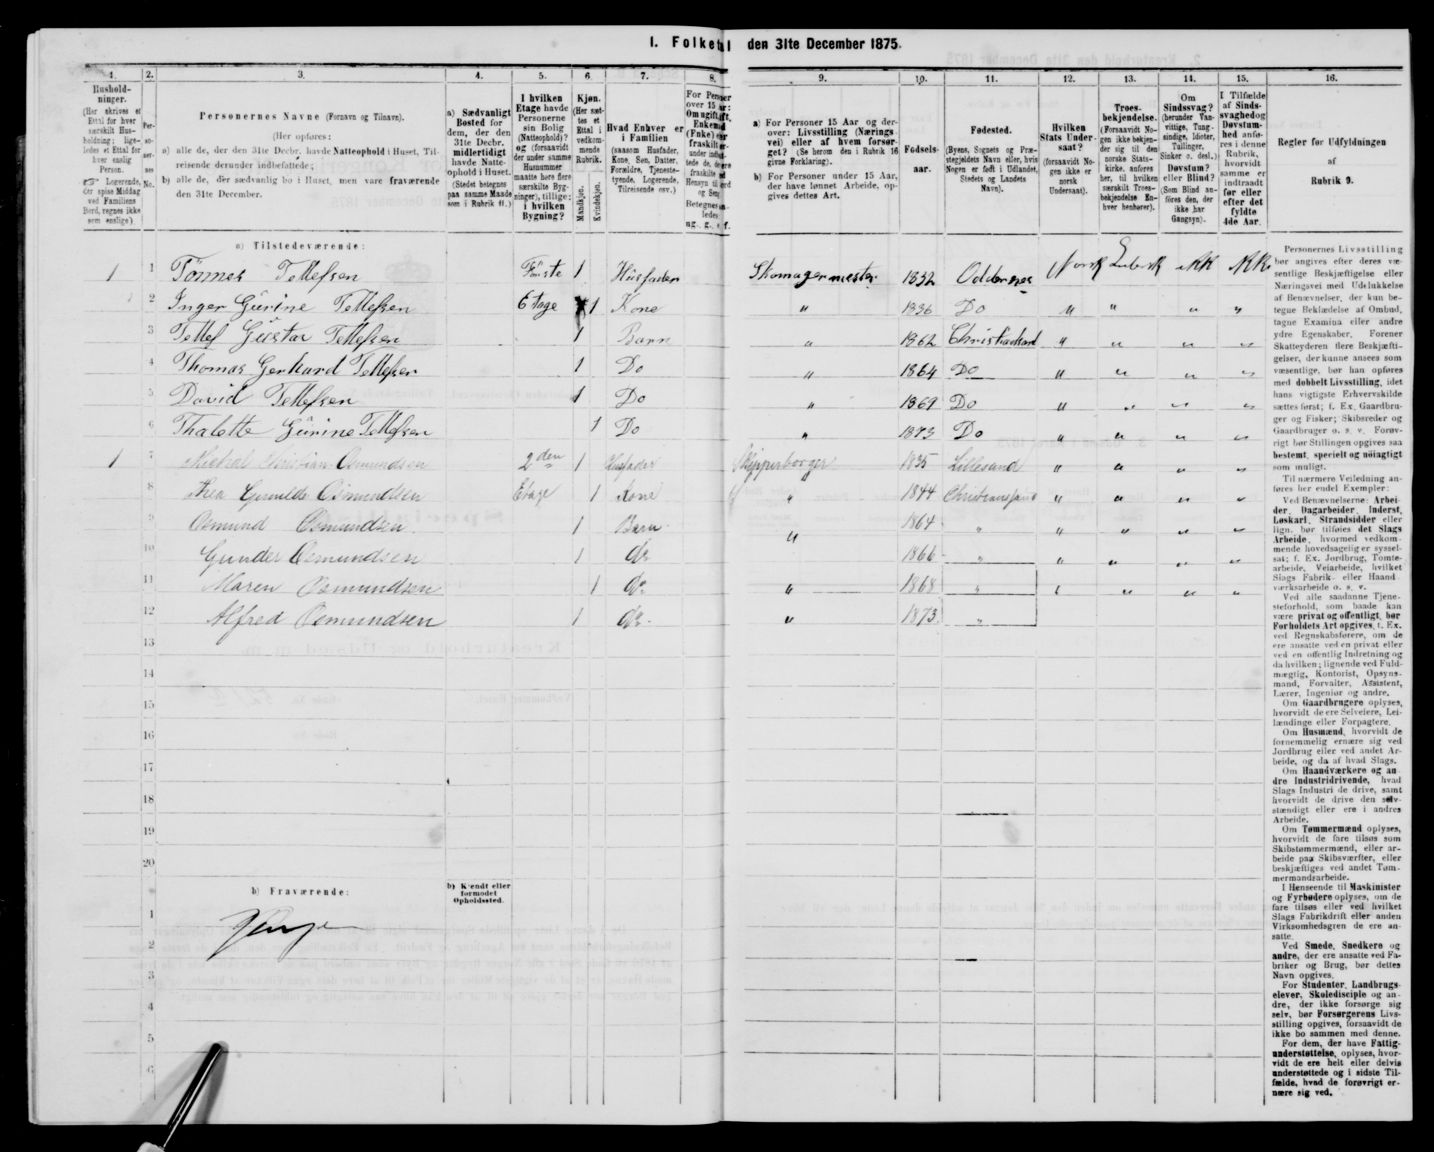 I. Folketal den 31te December 1875.
1. 2. 3. 4. 5. 6. 7. 8. 9. 10. 11. 12. 13. 14. 15. 16.
Hushold-
ninger.
(Her skrives et
Ettal for hver
særskilt Hus-
holdning; lige-
ledes et Ettal for
hver enslig
Person.
☞ Logerende,
der spise Middag
ved Familiens
Bord, regnes ikke
som enslige.)
Per-
so-
ner-
nes
No.
Personernes Navne (Fornavn og Tilnavn).
(Her opføres:
a) alle de, der den 31te Decbr. havde Natteophold i Huset, Til-
reisende derunder indbefattede;
b) alle de, der sædvanlig bo i Huset, men vare fraværende
den 31te December.
a) Sædvanligt
Bosted for
dem, der den
31te Decbr.
midlertidigt
havde Natte-
ophold i Huset.
(Stedet betegnes
paa samme Maade
som i Rubrik 11.)
I hvilken
Etage havde
Personerne
sin Bolig
(Natteophold)?
og (forsaavidt
der under samme
Husnummer
maatte høre flere
særskilte Byg-
ninger), tillige:
i hvilken
Bygning?
Kjøn.
(Her sæt-
tes et
Ettal i
vedkom-
mende
Rubrik.
Mandkjøn.
Kvindekjøn.
Hvad Enhver er
i Familien
(saasom Husfader,
Kone, Søn, Datter,
Forældre, Tjeneste-
tyende, Logerende,
Tilreisende osv.)
For Personer
over 15 Aar:
Om ugift, gift,
Enkemand
(Enke) eller
fraskilt
a) For Personer 15 Aar og der-
over: Livsstilling (Nærings
vei) eller af hvem forsør-
get? (Se herom den i Rubrik 16
givne Forklaring).
b) For Personer under 15 Aar,
der have lønnet Arbeide, op-
gives dettes Art.
Fødsels-
aar.
Fødested.
(Byens, Sognets og Præ-
stegjeldets Navn eller, hvis
Nogen er født i Udlandet,
Stedets og Landets
Navn).
Hvilken
Stats Under-
saat?
(forsaavidt No-
gen ikke er
norsk
Undersaat).
Troes-
bekjendelse.
(Forsaavidt No-
gen ikke bekjen-
der sig til den
norske Stats-
kirke, anføres
her, til hvilken
særskilt Troes-
bekjendelse En-
hver henhører).
Om
Sindssvag?
(herunder Van-
vittige, Tung-
sindige, Idioter,
Tullinger,
Sinker o. desl.)
Døvstum?
eller Blind?
(Som Blind an-
føres den, der
ikke har
Gangsyn).
I Tilfælde
af Sinds-
svaghed og
Døvstum-
hed anfø-
res i denne
Rubrik,
hvorvidt
samme er
indtraadt
før eller
efter det
fyldte
4de Aar.
Regler for Udfyldningen
af
Rubrik 9.
a) Tilstedeværende:
1 1 Tönnes Tellefsen Förste 1 Husfader Skomagermester 1832 Oddernes Norsk Lutersk ikk Ikke
2 Inger Gurine Tellefsen Etage 1 Kone " 1836 Do " " " "
3 Tellef Gustav Tellefsen 1 Barn " 1862 Christiansand " " " "
4 Thomas Gerhard Tellefsen 1 Do " 1864 Do " " " "
5 David Tellefsen 1 Do " 1869 Do " " " "
6 Thalette Gurine Tellefsen 1 Do " 1873 Do " " " "
1 7 Christian Osmundsen 2den 1 Husfader Skipperborger 1835 Lillesand " " " "
8 Thea Gunilde Osmundsen Etage 1 Kone " 1844 Christianssand " " " "
9 Osmund Osmundsen 1 Barn " 1864 " " " " "
10 Gunder Osmundsen 1 do 1866 " " " " "
11 Maren Osmundsen 1 do. " 1868 " " " " "
12 Alfred Osmundsen 1 do. " 1873 "
13
14
15
16
17
18
19
20
b) Fraværende:
b) Kjendt eller
formodet
Opholdssted.
1
Ingen
2
3
4
5
6
Personernes Livsstilling
bør angives efter deres væ-
sentlige Beskjæftigelse eller
Næringsvei med Udelukkelse
af Benævnelser, der kun be-
tegne Beklædelse af Ombud,
tagne Examina eller andre
ydre Egenskaber. Forener
Skatteyderen flere Beskjæfti-
gelser, der kunne ansees som
væsentlige, bør han opføres
med dobbelt Livsstilling, idet
hans vigtigste Erhvervskilde
sættes først; f. Ex. Gaardbru-
ger og Fisker; Skibsreder og
Gaardbruger o. s. v. Forøv-
rigt bør Stillingen opgives saa
bestemt, specielt og nøiagtigt
som muligt.
Til nærmere Veiledning an-
føres her endel Exempler:
Ved Benævnelserne: Arbei-
der, Dagarbeider, Inderst,
Løskarl, Strandsidder eller
lign. bør tilføies det Slags
Arbeide, hvormed vedkom-
mende hovedsagelig er syssel-
sat; f. Ex. Jordbrug, Tomte-
arbeide, Veiarbeide, hvilket
Slags Fabrik- eller Haand
værksarbeide o. s. v.
Ved alle saadanne Tjene-
steforhold, som baade kan
være privat og offentligt, bør
Forholdets Art opgives, f. Ex.
ved Regnskabsførere, om de
ere ansatte ved en privat eller
ved en offentlig Indretning og
da hvilken; lignende ved Fuld-
mægtig, Kontorist, Opsyns-
mand, Forvalter, Assistent,
Lærer, Ingeniør og andre.
Om Gaardbrugere oplyses,
hvorvidt de ere Selveiere, Lei-
lændinge eller Forpagtere.
Om Husmænd, hvorvidt de
fornemmelig ernære sig ved
Jordbrug eller ved andet Ar-
beide, og da af hvad Slags.
Om Haandværkere og an
dre Industridrivende, hvad
Slags Industri de drive, samt
hvorvidt de drive den selv-
stændigt eller ere i andres
Arbeide.
Om Tømmermænd oplyses,
hvorvidt de fare tilsøs som
Skibstømmermænd, eller ar-
beide paa Skibsværfter, eller
beskjæftiges ved andet Tøm-
mermandsarbeide.
I Henseende til Maskinister
og Fyrbødere oplyses, om de
fare tilsøs eller ved hvilket
Slags Fabrikdrift eller anden
Virksomhedsgren de ere an-
satte.
Ved Smede, Snedkere og
andre, der ere ansatte ved Fa-
briker og Brug, bør dettes
Navn opgives.
For Studenter, Landbrugs-
elever, Skoledisciple og an-
dre, der ikke forsørge sig
selv, bør Forsørgerens Livs-
stilling opgives, forsaavidt de
ikke bo sammen med denne.
For dem, der have Fattig-
understøttelse, oplyses, hvor-
vidt de ere helt eller delvis
understøttede og i sidste Til-
fælde, hvad de forøvrigt er-
nære sig ved.